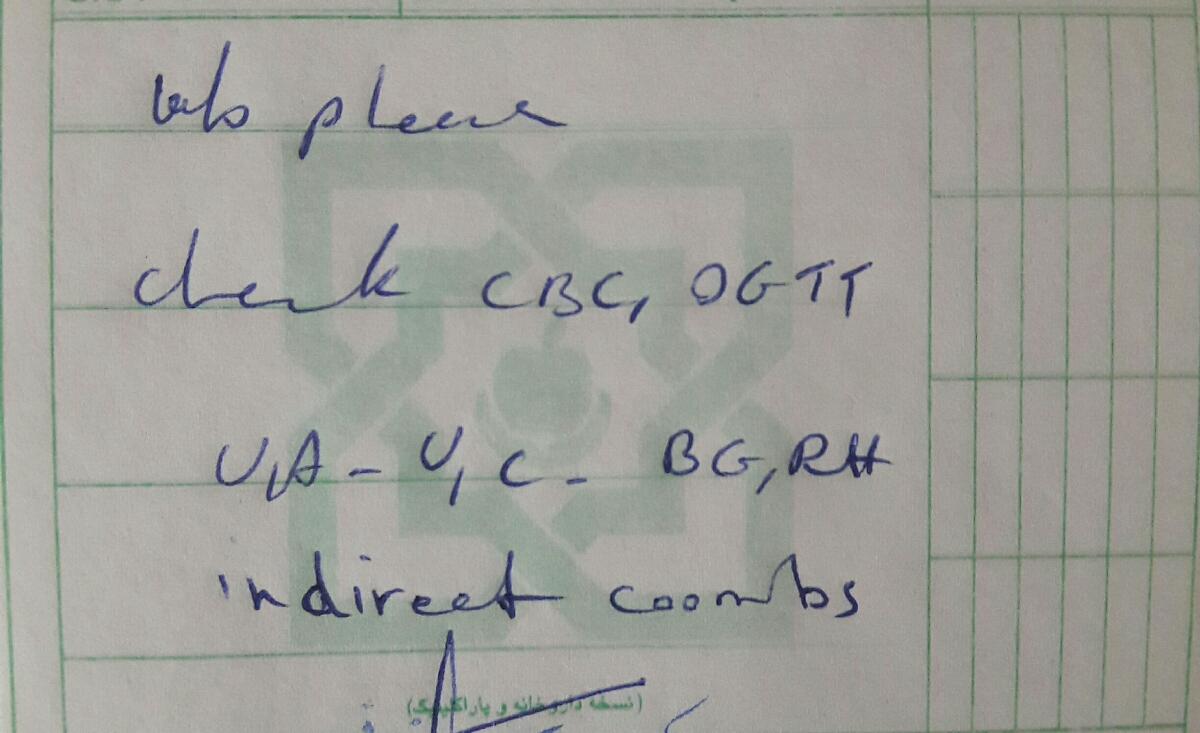 lab please
check CBC, OGTT
U,A - U,C - BG,RH
indirect coombs
(نسخه داروخانه و پاراکلینیک)